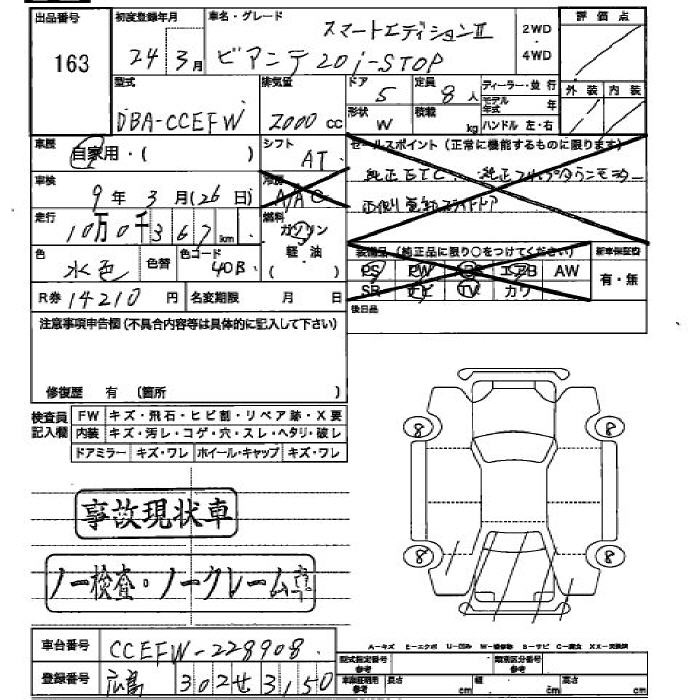 出品番号 初度登録年月 車名・グレード スマートエディションⅡ 2WD 評価点
163 24 3月 ビアンテ 20 i-STOP 4WD
型式 排気量 ドア 定員 ディーラー・並行 外装 内装
DBA-CCEFW 2000 cc 5 8人 モデル年式 年
形状 W 積載 kg ハンドル 左・右
車歴 自家用・( ) シフト AT セールスポイント(正常に機能するものに限ります)
車検 9年 3月(26日) 冷房 AAC 純正ETC
走行 10万0千367km 燃料 ガソリン・軽・油 ( )
色 水色 色替 色コード 40B 装備品(純正品に限り○をつけてください) 新車保証書
PS PW エアB AW 有・無
SR ナビ TV カワ
R券 14210円 名変期限 月 日 後日品
注意事項申告欄(不具合内容等は具体的に記入して下さい)
修復歴 有 (箇所 )
検査員記入欄 FW キズ・飛石・ヒビ割・リペア跡・X要
内装 キズ・汚レ・コゲ・穴・スレ・ヘタリ・破レ
ドアミラー キズ・ワレ ホイール・キャップ キズ・ワレ
8 8
8 8
事故現状車
ノー検査・ノークレーム
A-キズ E-エクボ U-凹み W-補修跡 B-サビ C-腐食 XX-交換済
車台番号 CCEFW-228908
登録番号 広島 302 せ 3150
型式指定番号 参考 類別区分番号 参考
車庫証明用 参考 長さ cm 幅 cm 高さ cm